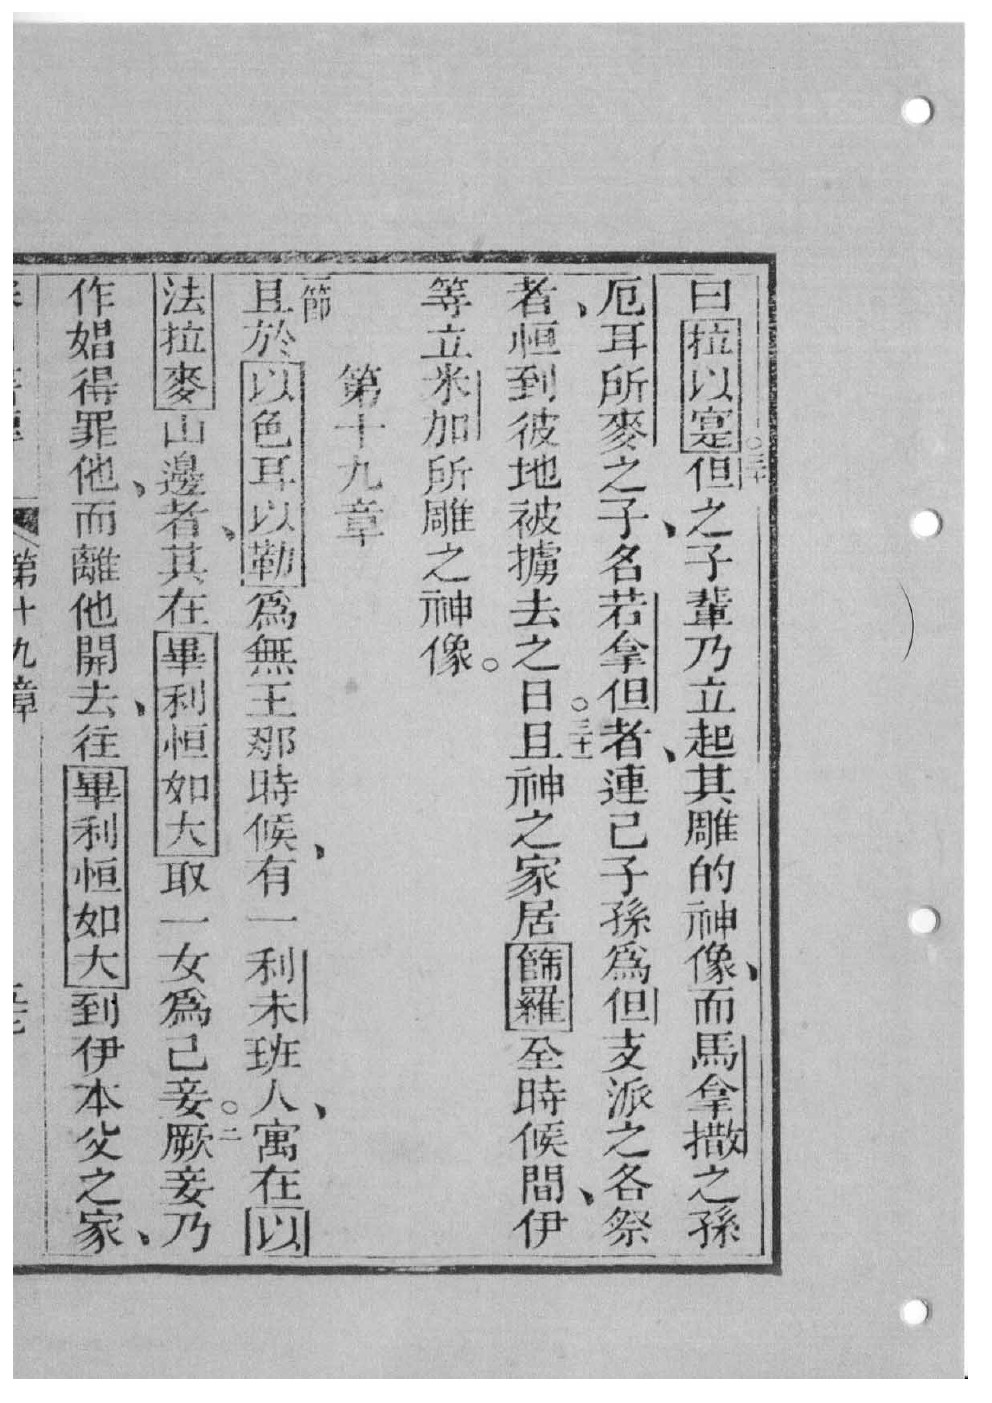 曰拉以寔。三十但之子輩乃立起其雕的神像、而馬拿撒之孫
厄耳所麥之子、名若拿但者、連己子孫爲但支派之各祭
者、恒到彼地被擄去之日。三十一且神之家居篩羅至時候間、伊
等立米加所雕之神像。
第十九章
一節且於以色耳以勒爲無王那時候、有一利未班人、寓在以
法拉麥山邊者、其在畢利恒如大取一女爲己妾。二厥妾乃
作娼得罪他、而離他開去、往畢利恒如大到伊本父之家、
第十九章